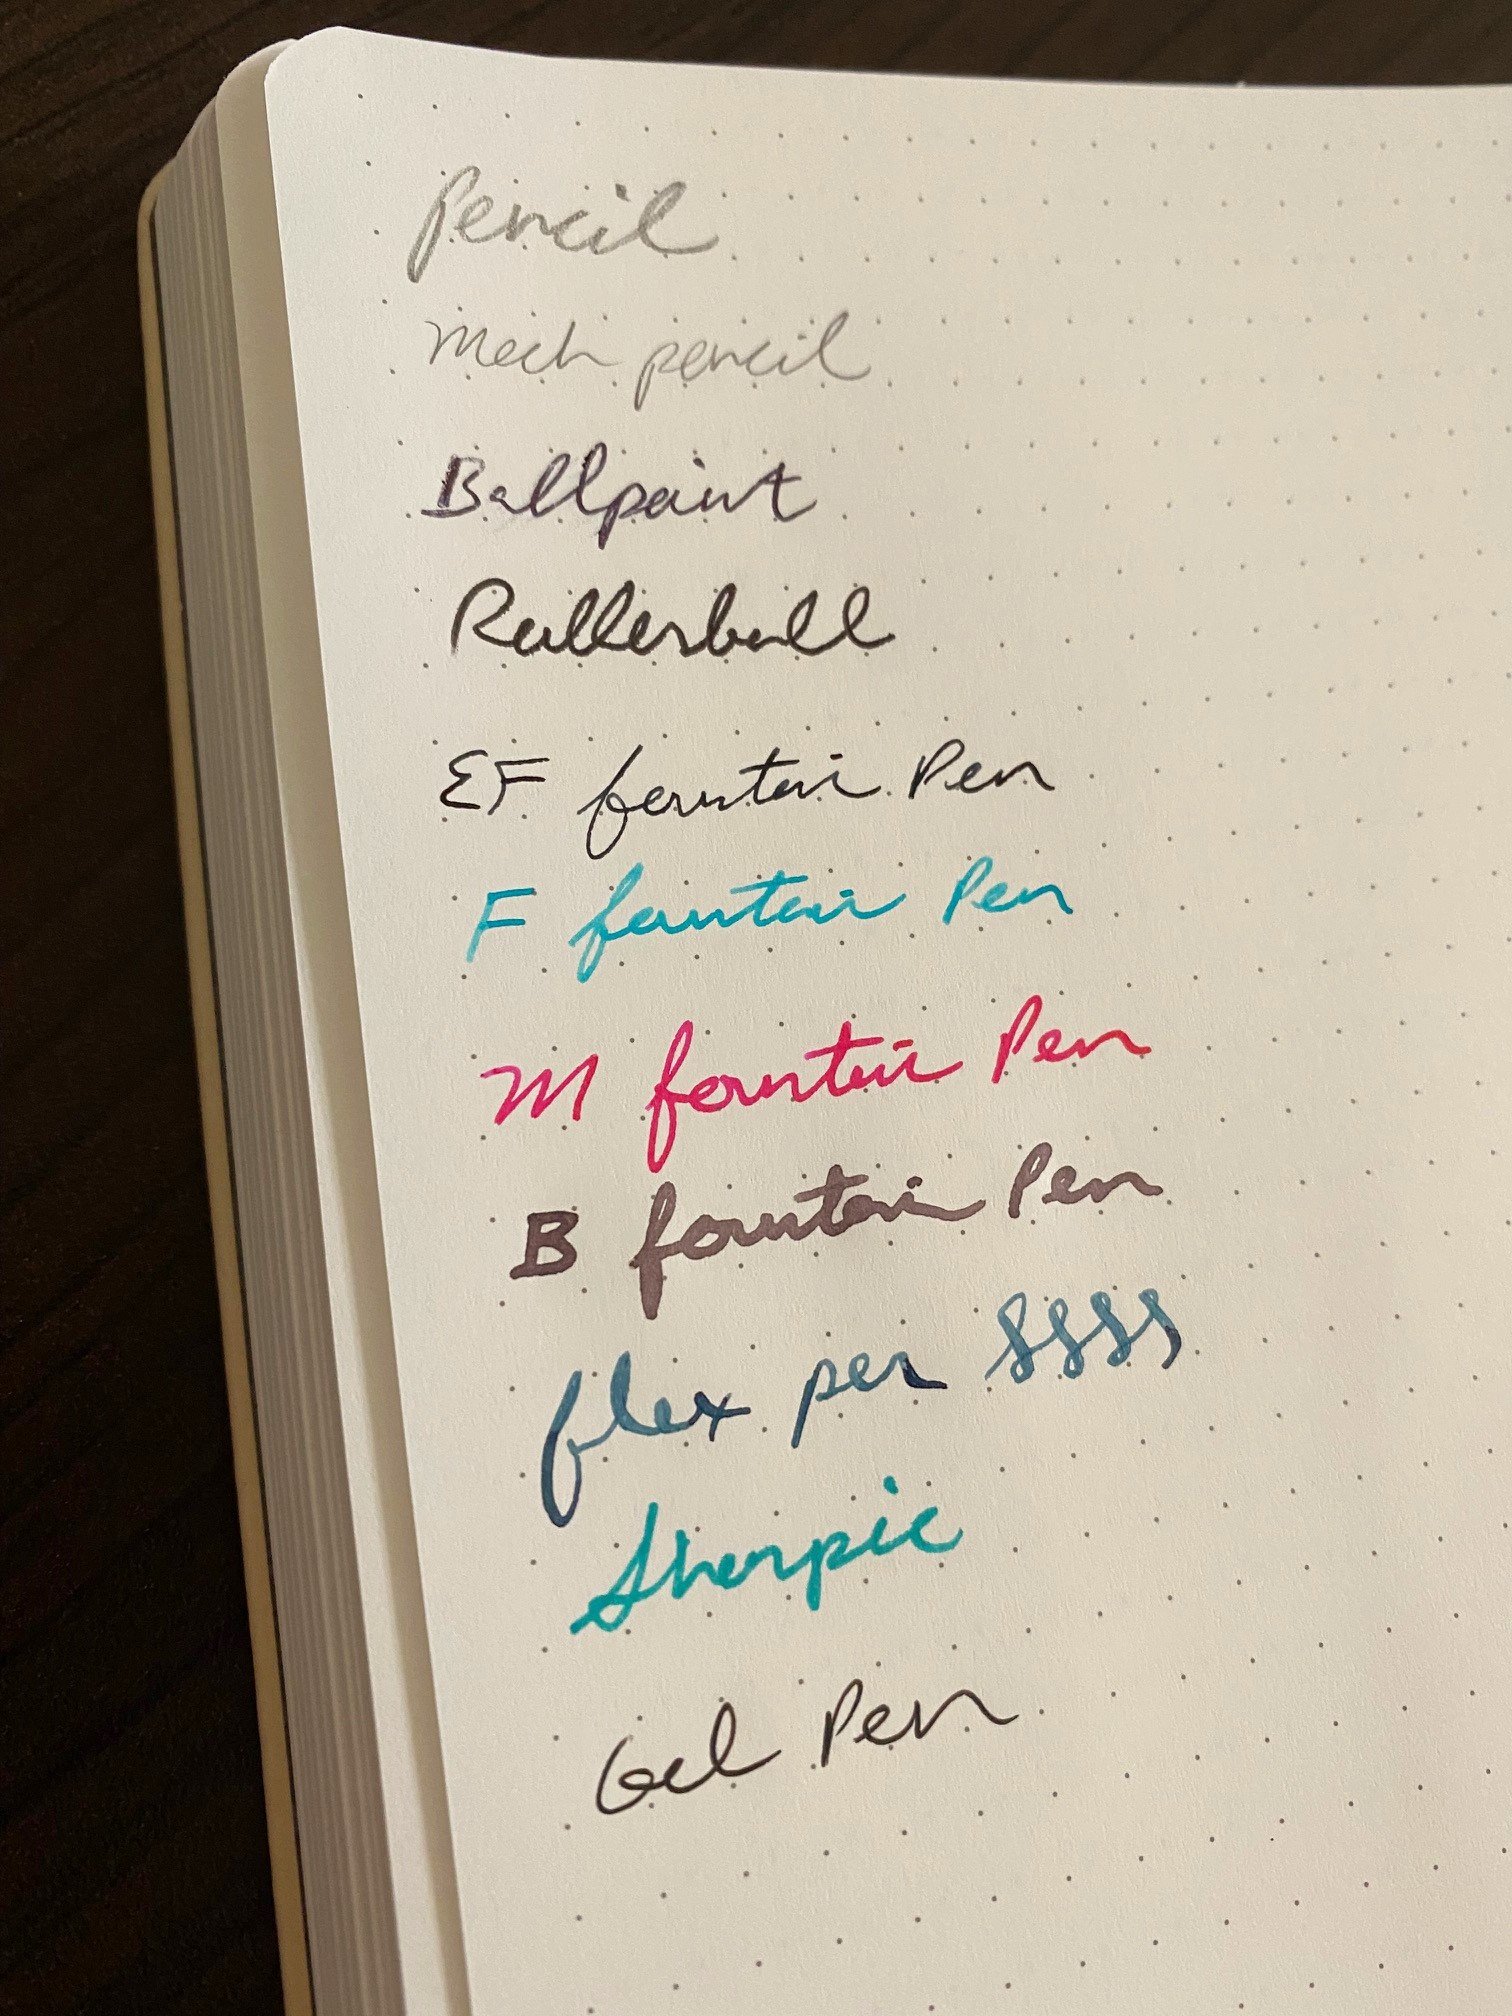 Pencil
Mech pencil
Ballpoint
Rollerball
EF fountain Pen
F fountain Pen
M fountain Pen
B fountain Pen
flex pen SSSS
Sharpie
Gel Pen